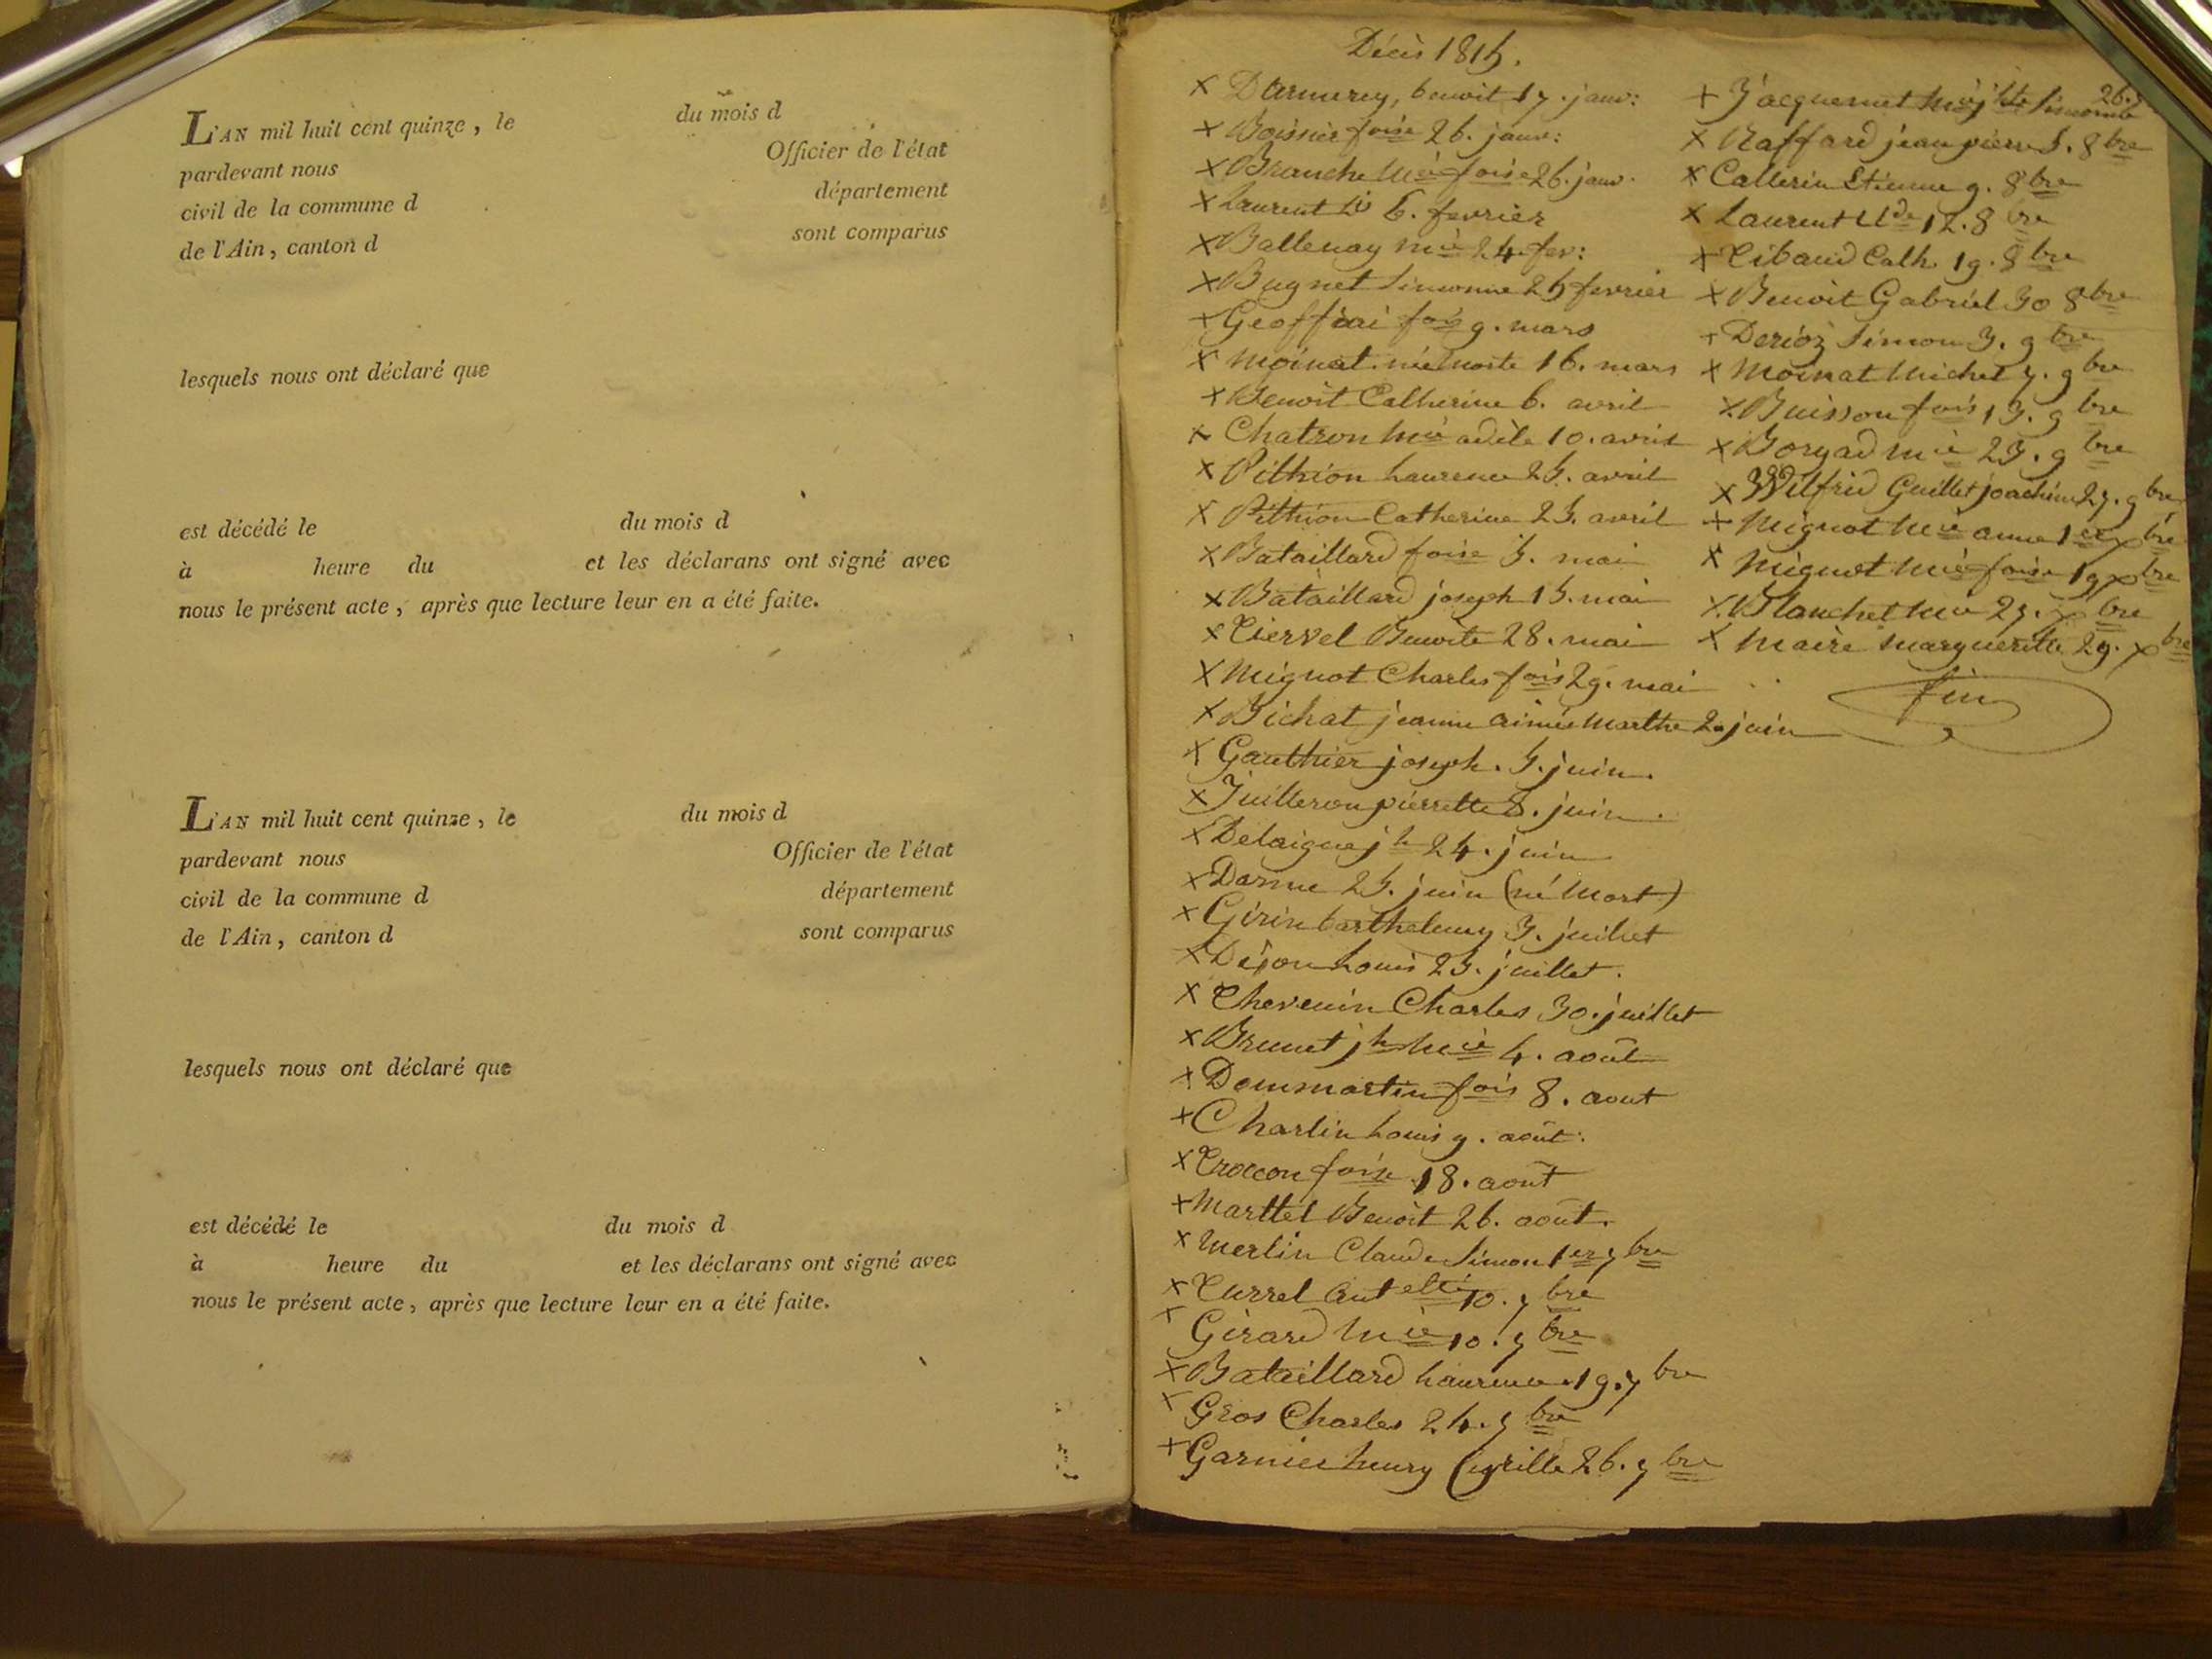 L'AN mil huit cent quinze, le du mois d
pardevant nous Officier de l'état
civil de la commune d département
de l'Ain, canton d sont comparus
lesquels nous ont déclaré que
est décédé le du mois d
à heure du et les déclarans ont signé avec
nous le présent acte, après que lecture leur en a été faite.
L'AN mil huit cent quinze, le du mois d
pardevant nous Officier de l'état
civil de la commune d département
de l'Ain, canton d sont comparus
lesquels nous ont déclaré que
est décédé le du mois d
à heure du et les déclarans ont signé avec
nous le présent acte, après que lecture leur en a été faite.
Décès 1815.
x Darmerey, benoit 17. janv:
x Boissier foise 26. janv:
x Branche Mie foise 26. janv.
x Laurent 6. fevrier
x Ballenay mie 24. fev:
x Bugnet Simonne 25 fevrier
x Geoffrai fois 9. mars
x Moinat née morte 16. mars
x Benoit Catherine 6. avril
x Chatron Mie adèle 10. avril
x Pithion Laurence 25. avril
x Pithion Catherine 25. avril
x Bataillard foise 5. mai
x Bataillard joseph 15. mai
x Tiersel Benoite 28. mai
x Mignot Charles fois 29. mai
x Bichat jeanne aimée Marthe 2. juin
x Gauthier joseph. 5. juin.
x Juilleron pierrette 8. juin.
x Delaigue jh 24. juin
x Darme 25. juin (né Mort)
x Girin barthelemy 3. juillet
x Dijon Louis 25. juillet.
x Thevenin Charles 30. juillet
x Brunet jh Mie 4. août
x Dommartin fois 8. aout
x Charlin Louis 9. août.
x Croccon foise 18. août
x Marttel Benoit 26. août.
x Merlin Claude Simon 1er 7bre
x Currel Ant elte 10. 7bre
x Girard Mie 10. 7bre
x Bataillard Laurence 19. 7bre
x Gros Charles 24. 7bre
x Garnier henry Cyrille 26. 7bre
x Jacquemet 26. 7
x Raffard jean pierre 5. 8bre
x Callerin Etienne 9. 8bre
x Laurent Cde 12. 8bre
x Tibaud Cath. 19. 8bre
x Benoit Gabriel 30 8bre
x Derioz Simon 3. 9bre
x Moinat Michel 7. 9bre
x Buisson fois 13. 9bre
x Goryad mie 23. 9bre
x Wilfrid Guillet joachim 27. 9bre
x Mignot Mie anne 1er xbre
x Mignot Mie foise 19 xbre
x Blanchet Mie 27. xbre
x Maire Marguerite 29. xbre
fin